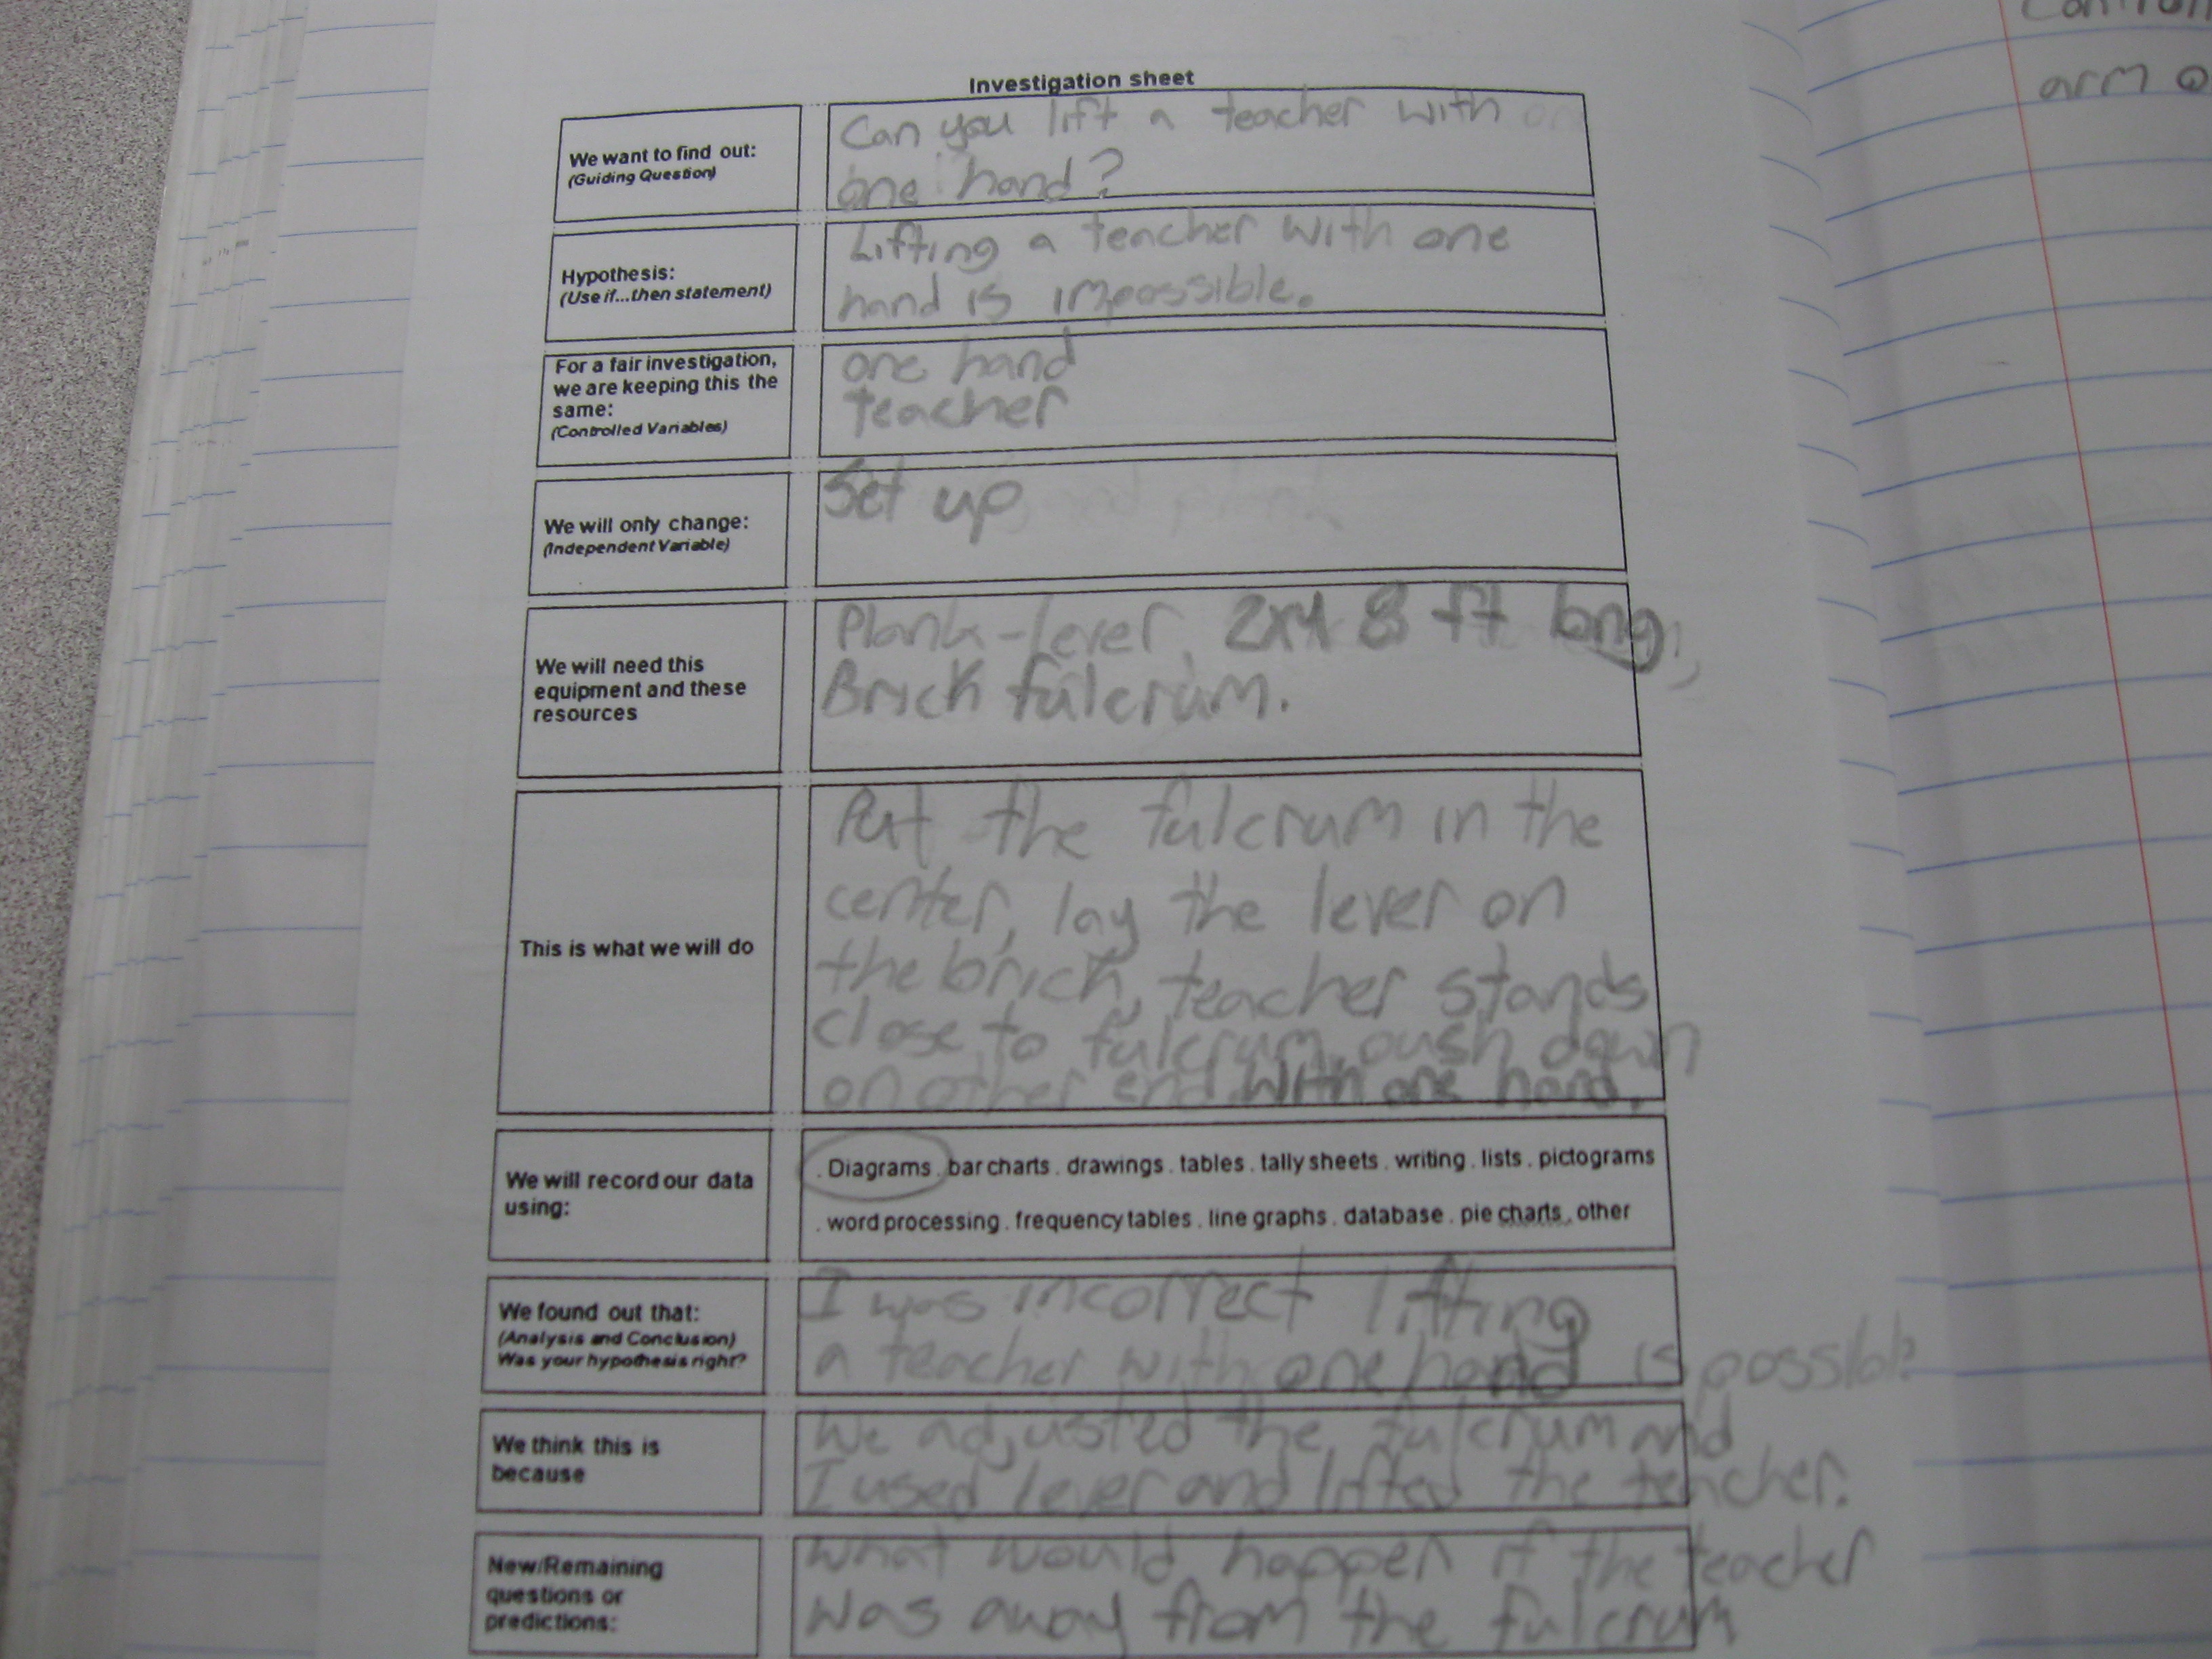 Investigation sheet
We want to find out:
(Guiding Question)
Can you lift a teacher with
one hand?
Hypothesis:
(Use if...then statement)
Lifting a teacher with one
hand is impossible.
For a fair investigation,
we are keeping this the
same:
(Controlled Variables)
one hand
teacher
We will only change:
(Independent Variable)
Set up
We will need this
equipment and these
resources
Plank-lever, 2x4 8 ft long,
Brick fulcrum.
This is what we will do
Put the fulcrum in the
center, lay the lever on
the brick, teacher stands
close to fulcrum, push down
on other end with one hand.
We will record our data
using:
. Diagrams . bar charts . drawings . tables . tally sheets . writing . lists . pictograms
. word processing . frequency tables . line graphs . database . pie charts . other
We found out that:
(Analysis and Conclusion)
Was your hypothesis right?
I was incorrect lifting
a teacher with one hand is possible
We think this is
because
We adjusted the fulcrum and
I used lever and lifted the teacher.
New/Remaining
questions or
predictions:
What would happen if the teacher
was away from the fulcrum
arm